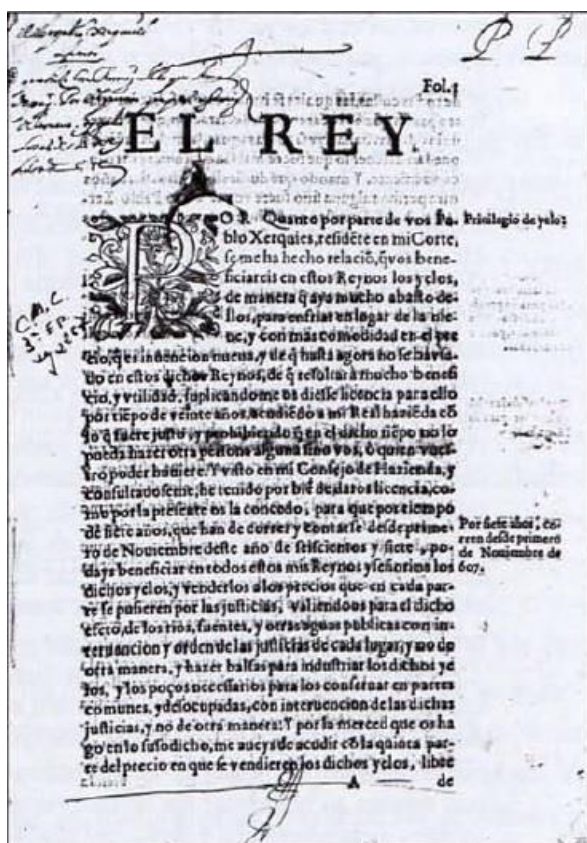 Fol. 1
EL REY.
POR Quanto por parte de vos Pa-
blo Xerquies, residẽte en mi Corte,
se me ha hecho relaciõ, q̃ vos bene-
ficiareis en estos Reynos los yelos,
de manera q̃ aya mucho abasto de-
llos, para enfriar en lugar de la nie-
ue, y con mas comodidad en el pre
cio, q̃ es inuencion nueua, y de q̃ hasta agora no se ha vsa-
do en estos dichos Reynos, de q̃ resultarà mucho benefi
cio, y vtilidad, suplicandome os diesse licencia para ello
por tiẽpo de veinte años, acudiẽdo a mi Real hazieda cõ
lo q̃ fuere justo, y prohibiendo q̃ en el dicho tiẽpo no lo
pueda hazer otra persona alguna sino vos, ò quien vues-
tro poder huuiere. Y visto en mi Consejo de Hazienda, y
consultadoseme, he tenido por biẽ de daros licencia, co-
mo por la presente os la concedo, para que por tiempo
de siete años, que han de correr y contarse desde prime-
ro de Nouiembre deste año de seiscientos y siete, po-
days beneficiar en todos estos mis Reynos y señorios los
dichos yelos, y venderlos a los precios que en cada par-
te se pusieren por las justicias, valiendoos para el dicho
efeto, de los rios, fuentes, y otras aguas publicas con in-
teruencion y orden de las justicias de cada lugar, y no de
otra manera, y hazer balsas para industriar los dichos ye
los, y los poços necessarios para los conseruar en partes
comunes, y desocupadas, con interuencion de las dichas
justicias, y no de otra manera: Y por la merced que os ha
go en lo susodicho, me aueys de acudir cõ la quinta par-
te del precio en que se vendieren los dichos yelos, libre
A de
Priuilegio de yelo;
Por siete años, co-
rren desde primero
de Nouiembre de
607.
C.M.C.